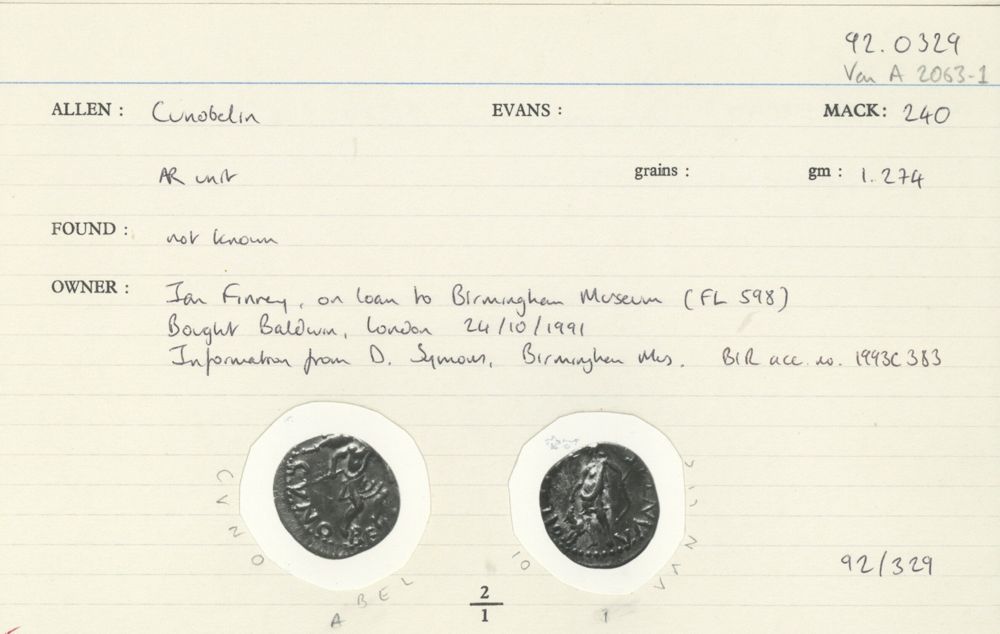 92.0329
Van A 2063-1
ALLEN : Cunobelin EVANS : MACK: 240
AR unit grains : gm : 1.274
FOUND : not known
OWNER : Ian Finney, on loan to Birmingham Museum (FL 598)
Bought Baldwin, London 24/10/1991
Information from D. Symons, Birmingham Mus. BIR acc. no. 1993C383
CVNO
BEL
92/329
2
1